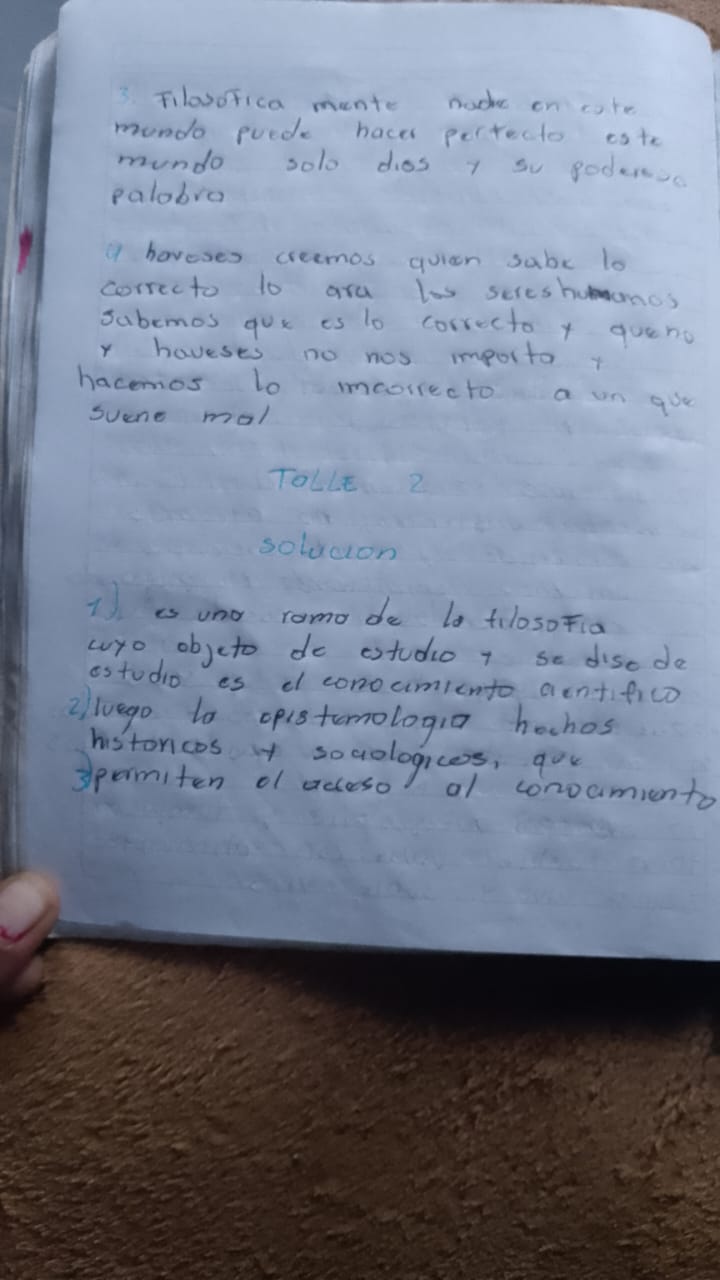 3. Filosofica mente nadie en este
mundo puede hacer perfecto este
mundo solo dios y su poderosa
palabra
4 haveses creemos quien sabe lo
correcto lo ara los seres humanos
sabemos que es lo correcto y que no
y haveses no nos importa y
hacemos lo incorrecto a un que
suene mal
TALLE 2
solucion
1) es una rama de la filosofia
cuyo objeto de estudio y se dise de
estudio es el conocimiento cientifico
2) luego la epistemologia hechos
historicos y sociologicos, que
3) permiten el acceso al conocimiento